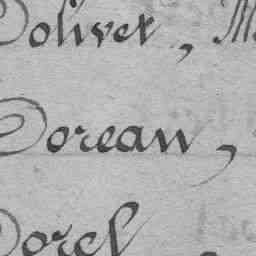 Dolivet, M
Doreau,
Doref